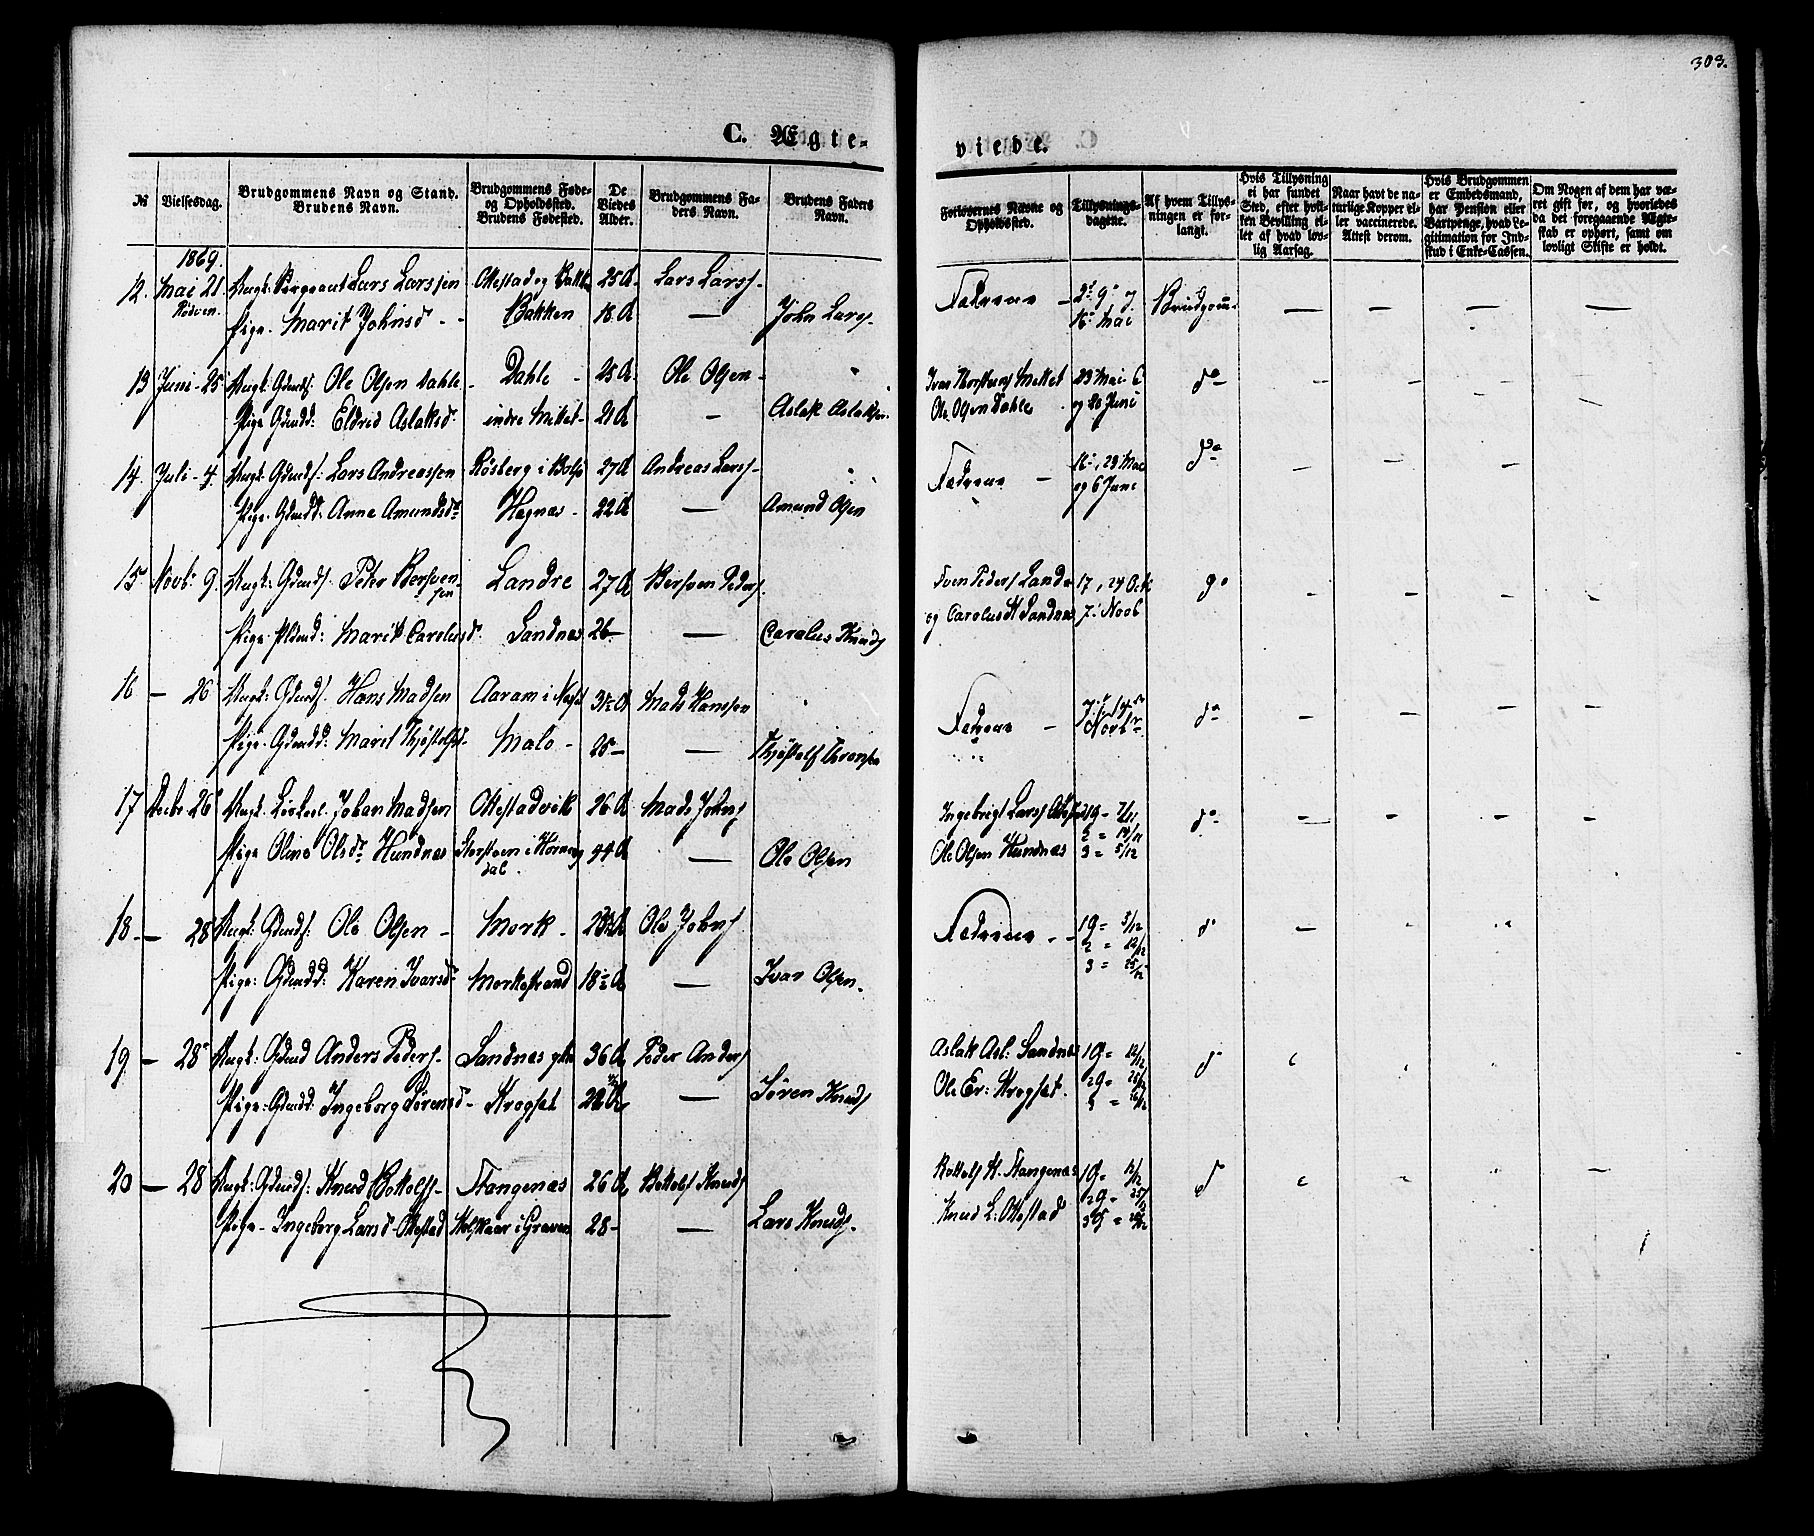 303.
C. Ægte-
viede.
№ Vielsesdag. Brudgommens Navn og Stand. Brudens Navn. Brudgommens Føde- og Opholdssted. Brudens Fødested. De Viedes Alder. Brudgommens Faders Navn. Brudens Faders Navn.
Forlovernes Navne og Opholdssted. Tillysnings-dagene. Af hvem Tillysningen er forlangt. Hvis Tillysning ei har fundet Sted, efter hvilken Bevilling eller af hvad lovlig Aarsag. Naar havt de naturlige Kopper eller vaccinerede. Attest derom. Hvis Brudgommen er Embedsmand, har Pension eller Vartpenge, hvad Legitimation for Indskud i Enke-Cassen. Om Nogen af dem har været gift før, og hvorledes da det foregaaende Ægteskab er ophørt, samt om lovligt Skifte er holdt.
1869.
12. Mai 21 Ungk: Sergeant Lars Larssen Ottestad og Bakken 25 A Lars Larss. Fædrene 2, 9, 7 Brudgom.
Rødven. Pige. Marit Johnsd. Bakken 18 A — John Larss. 16 Mai
13 Juni 25 Ungk: Gdmds: Ole Olsen Dahle Dahle 25 A Ole Olsen Ivar Thorstens Mittet 23 Mai 6 do
Pige Gdmdd: Eldrid Aslaksd. indre Mittet 21 A — Aslak Aslaksen Ole Olsen Dahle og 20 Juni
14. Juli 4. Ungk: Gdmds: Lars Andreassen Røsberg i Bolsø 27 A Andreas Larss. Fædrene 16, 23 Mai do
Pige. Gdmdd: Anne Amundsd. Hegnæs 22 A — Amund Olsen og 6 Juni
15. Novb. 9. Ungk: Gdmds. Peter Bersvensen Landre 27 A Bersven Peders. Sven Peders Landre 17, 24 Oct. do
Pige Marit Carolusd. Sandnes 26 — Carolus Knuds og Carolus K Sandnes 7 Novb
16 — 26 Ungk: Gdmds. Hans Madsen Aaram i 31½ A Mads Hanssen Fædrene 7, 14 do
Pige. Gdmdd: Marit Thjøstolfsd. Malo 25 — Thjøstolf Novbr.
17 Decbr 26 Ungk. Johan Madsen Ottestadvik 26 A Mads Johns Ingebrigt Larss 1 G = 7/11 do
Pige Oline Olsd. Hundnæs Storsteen i Hornendal. 44 A — Ole Olsen Ole Olsen Hundnæs 2 = 14/11
3 = 5/12
18 — 28 Ungk: Gdmds: Ole Olsen Mork 23 A Ole Johns Fædrene 1 G = 5/12 do
Pige: Gdmdd: Karen Ivarsd. Morkestrand 18½ A — Ivar Olsen. 2 = 12/12
3 = 25/12
19 — 28 Ungk: Gdmd Anders Peders. Sandnes 36 A Peder Anders Aslak Asl: Sandnes 1 G = 12/12 do
Pige: Gdmdd: Ingeborg Sørensd. Krogset 28 A — Søren Knuds Ole Er: Krogset. 2 G = 25/12
3 = 26/12
20 — 28 Ungk: Gdmds: Knud Bottolfs. Stangenæs 26 A Bottolf Knuds Bottolf K. Stangenæs 1 G = 12/12 do
Pige Ingeborg Larsd. Ottestad i Graven 28 — Lars Knuds. Knud L: Ottestad 2 G = 25/12
3 G = 26/12